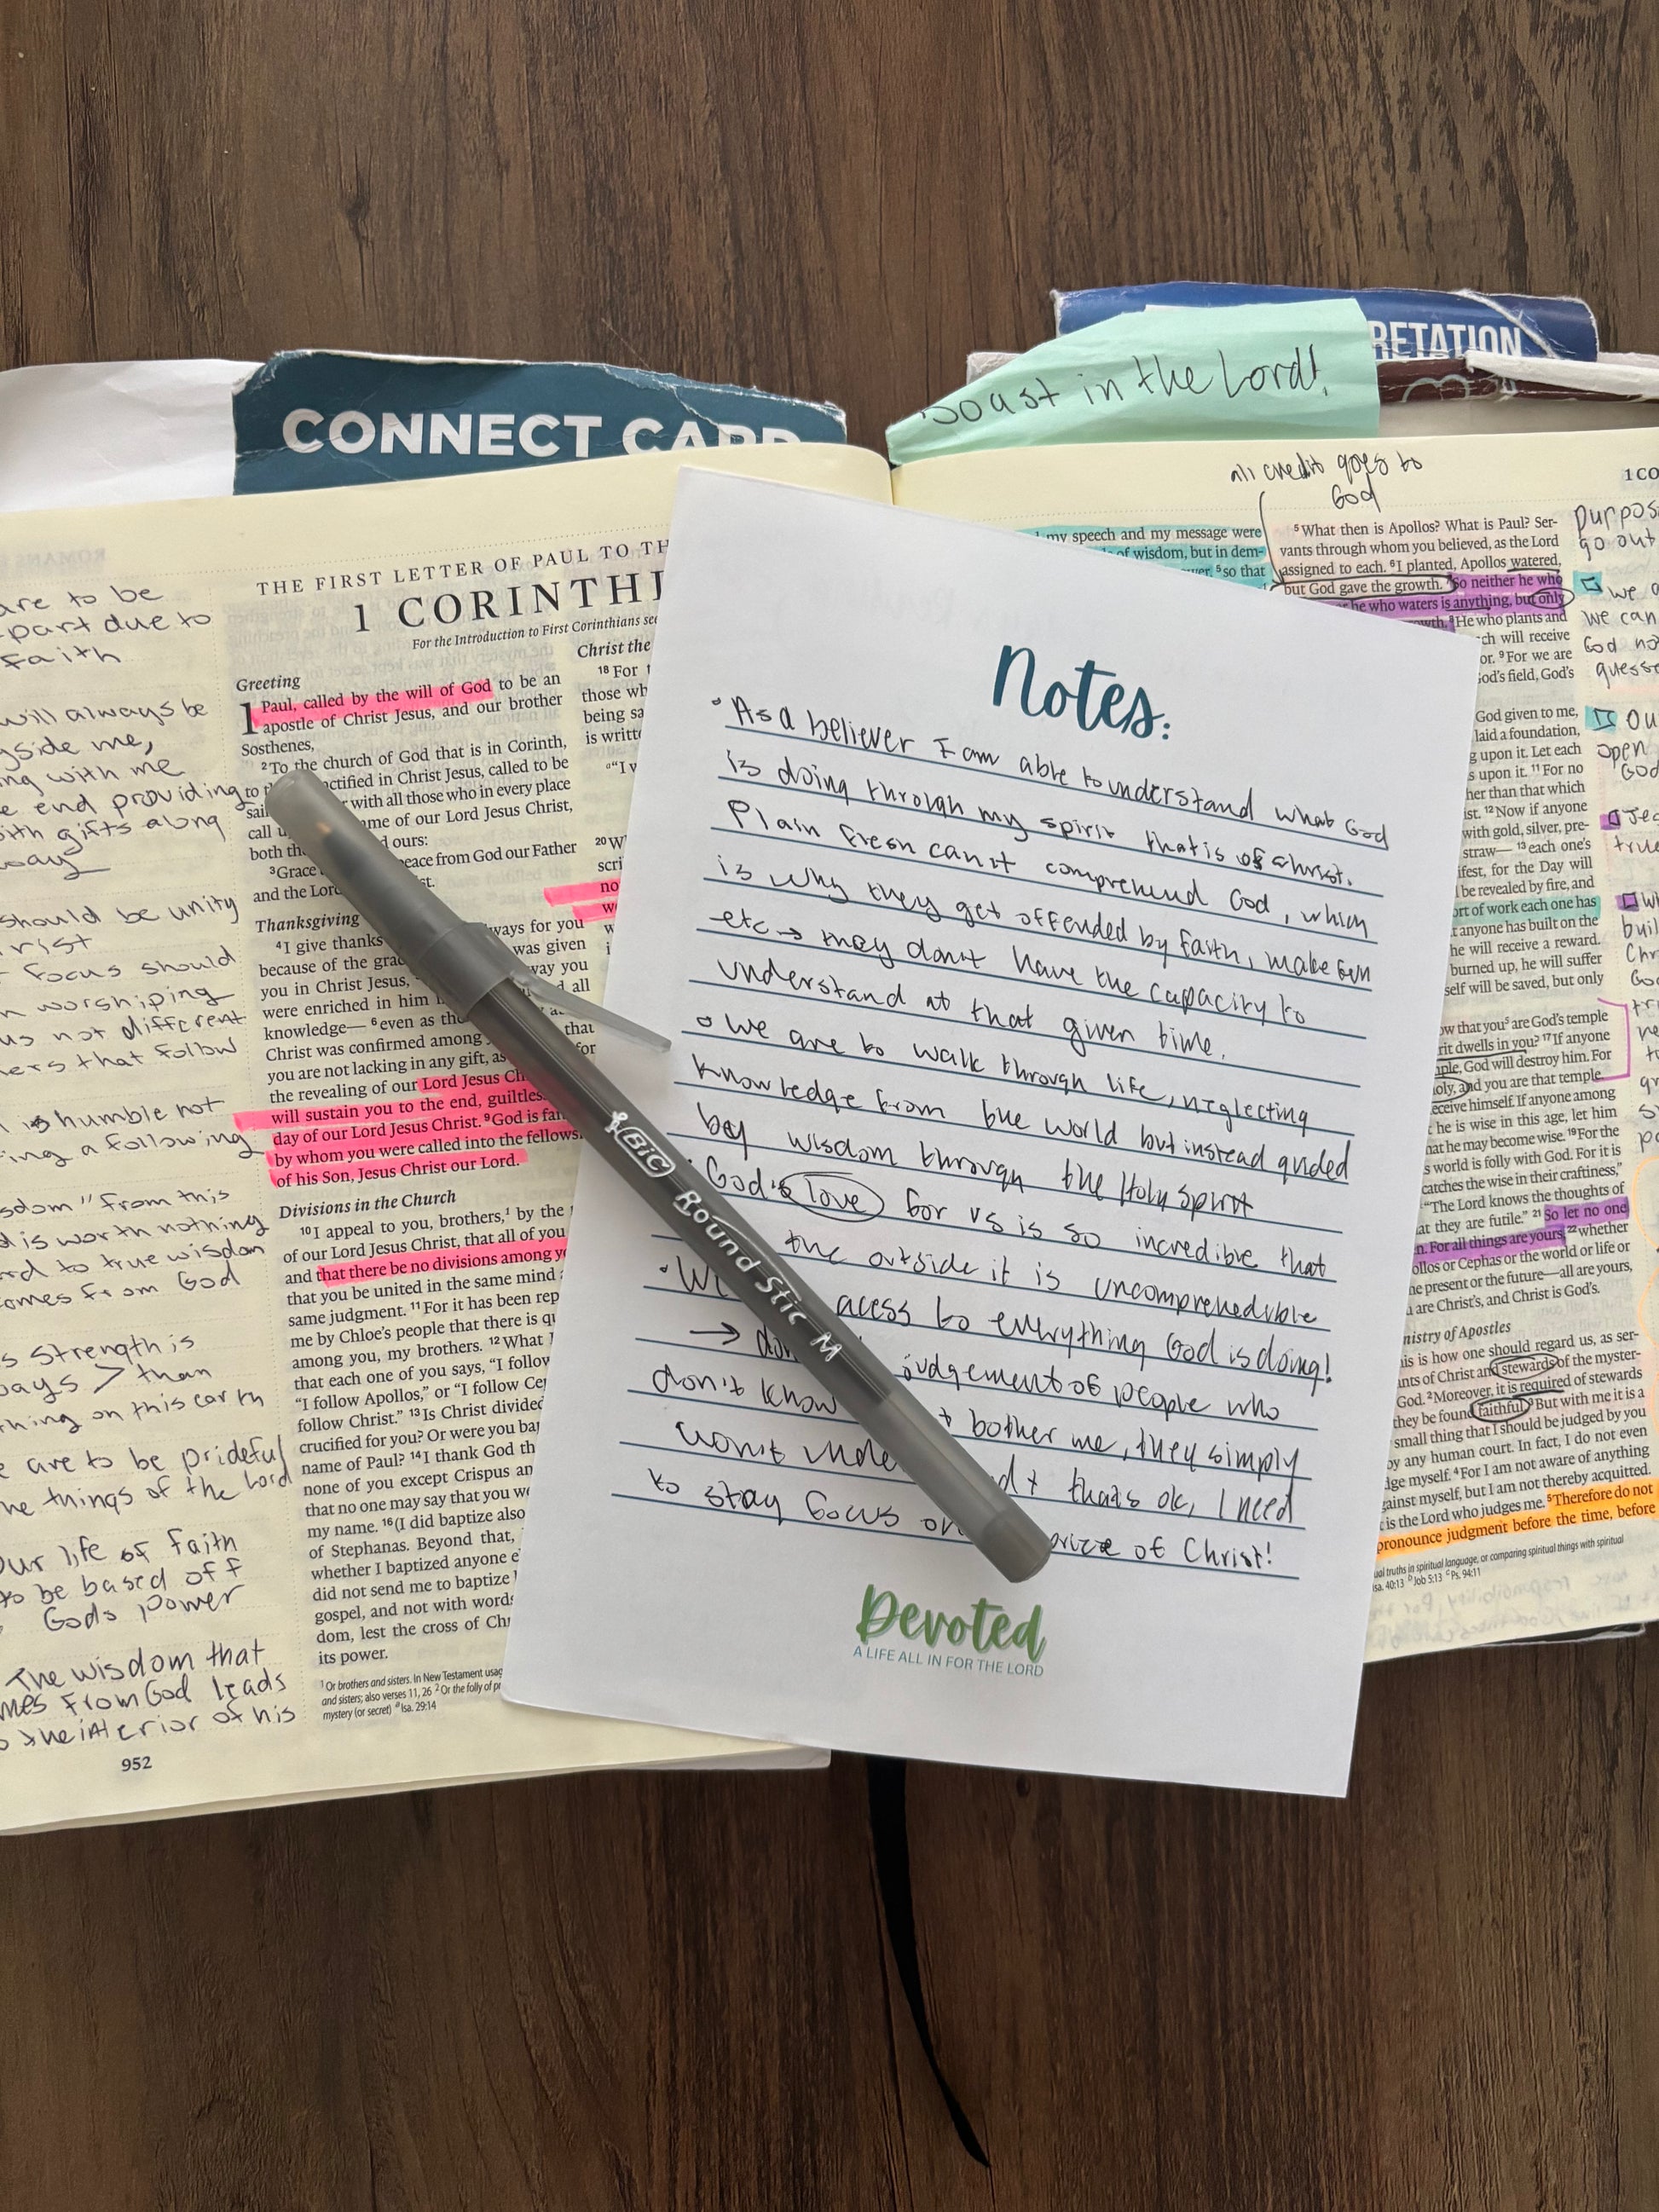 CONNECT CARD
RETATION
Boast in the Lord!
all credit goes to
God
1 CO
are to be
part due to
Faith
will always be
side me,
ing with me
e end providing
with gifts along
way
should be unity
rist
focus should
n worshiping
us not different
ers that follow
is humble not
ing a following
sdom" from this
d is worth nothing
to true wisdom
comes from God
s strength is
ways > than
thing on this earth
e are to be prideful
he things of the Lord
Our life of faith
to be based off
Gods power
The wisdom that
mes from God leads
the interior of his
952
THE FIRST LETTER OF PAUL TO TH
1 CORINTHI
For the Introduction to First Corinthians see
Greeting
1 Paul, called by the will of God to be an
apostle of Christ Jesus, and our brother
Sosthenes,
2 To the church of God that is in Corinth,
to ctified in Christ Jesus, called to be
with all those who in every place
call ame of our Lord Jesus Christ,
both d ours:
3 Grace eace from God our Father
and the Lord st.
Thanksgiving
4 I give thanks ways for you
because of the grac was given
you in Christ Jesus, way you
were enriched in him all
knowledge— 6 even as the
Christ was confirmed among that
you are not lacking in any gift, as for
the revealing of our Lord Jesus Ch
will sustain you to the end, guiltles
day of our Lord Jesus Christ. 9 God is fai
by whom you were called into the fellows
of his Son, Jesus Christ our Lord.
Divisions in the Church
10 I appeal to you, brothers,1 by the
of our Lord Jesus Christ, that all of you
and that there be no divisions among y
that you be united in the same mind
same judgment. 11 For it has been rep
me by Chloe's people that there is qu
among you, my brothers. 12 What I
that each one of you says, "I follow
"I follow Apollos," or "I follow Ce
follow Christ." 13 Is Christ divided
crucified for you? Or were you bap
name of Paul? 14 I thank God th
none of you except Crispus an
that no one may say that you we
my name. 16 (I did baptize also
of Stephanas. Beyond that,
whether I baptized anyone e
did not send me to baptize
gospel, and not with words
dom, lest the cross of Chr
its power.
1 Or brothers and sisters. In New Testament usag
and sisters; also verses 11, 26 2 Or the folly of pr
mystery (or secret) Isa. 29:14
Christ the
18 For
those wh
being sa
is writte
"I w
20 W
scri
no
w
Notes:
• As a believer I am able to understand what God
is doing through my spirit that is of Christ.
Plain flesh can't comprehend God, which
is why they get offended by faith, make fun
etc → they don't have the capacity to
understand at that given time.
• we are to walk through life, neglecting
knowledge from the world but instead guided
by wisdom through the Holy Spirit
• God's love for us is so incredible that
the outside it is uncomprehedible
• W acess to everything God is doing!
→ judgement of people who
don't know bother me, they simply
don't unde thats ok, I need
to stay focus on prize of Christ!
Devoted
A LIFE ALL IN FOR THE LORD
BIC Round Stic M
my speech and my message were
of wisdom, but in dem-
wer, 5 so that
5 What then is Apollos? What is Paul? Ser-
vants through whom you believed, as the Lord
assigned to each. 6 I planted, Apollos watered,
but God gave the growth. 7 So neither he who
he who waters is anything, but only
wth. 8 He who plants and
ch will receive
or. 9 For we are
God's field, God's
God given to me,
laid a foundation,
g upon it. Let each
s upon it. 11 For no
her than that which
ist. 12 Now if anyone
with gold, silver, pre-
straw— 13 each one's
ifest, for the Day will
be revealed by fire, and
ort of work each one has
anyone has built on the
he will receive a reward.
burned up, he will suffer
self will be saved, but only
ow that you5 are God's temple
rit dwells in you? 17 If anyone
mple, God will destroy him. For
oly, and you are that temple.
eceive himself. If anyone among
he is wise in this age, let him
hat he may become wise. 19 For the
s world is folly with God. For it is
catches the wise in their craftiness,"
"The Lord knows the thoughts of
at they are futile." 21 So let no one
n. For all things are yours, 22 whether
ollos or Cephas or the world or life or
he present or the future—all are yours,
u are Christ's, and Christ is God's.
nistry of Apostles
his is how one should regard us, as ser-
nts of Christ and stewards of the myster-
God. 2 Moreover, it is required of stewards
they be found faithful. 3 But with me it is a
small thing that I should be judged by you
by any human court. In fact, I do not even
dge myself. 4 For I am not aware of anything
gainst myself, but I am not thereby acquitted.
is the Lord who judges me. 5 Therefore do not
pronounce judgment before the time, before
ual truths in spiritual language, or comparing spiritual things with spiritual
sa. 40:13 Job 5:13 Ps. 94:11
purpos
go out
we
we can
God no
guess
Ou
open
God
true
buil
Chr